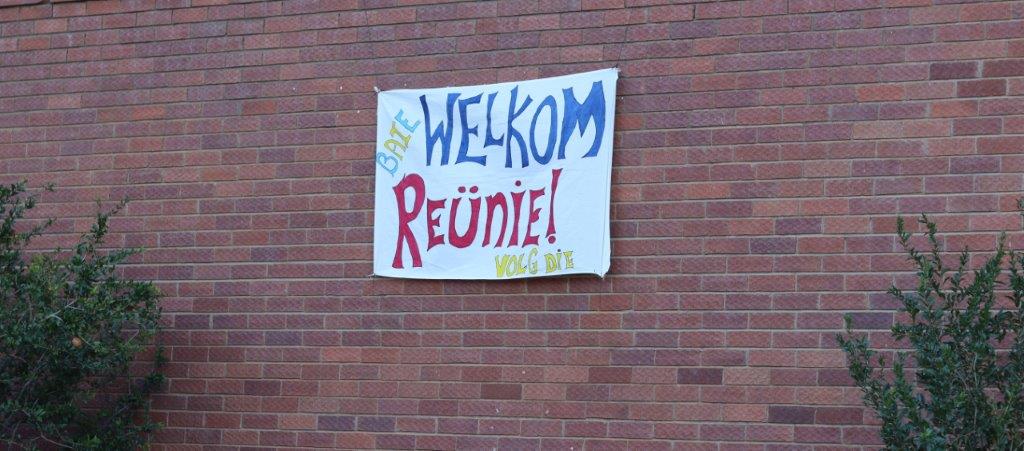 BAIE WELKOM
REÜNIE!
VOLG DIE